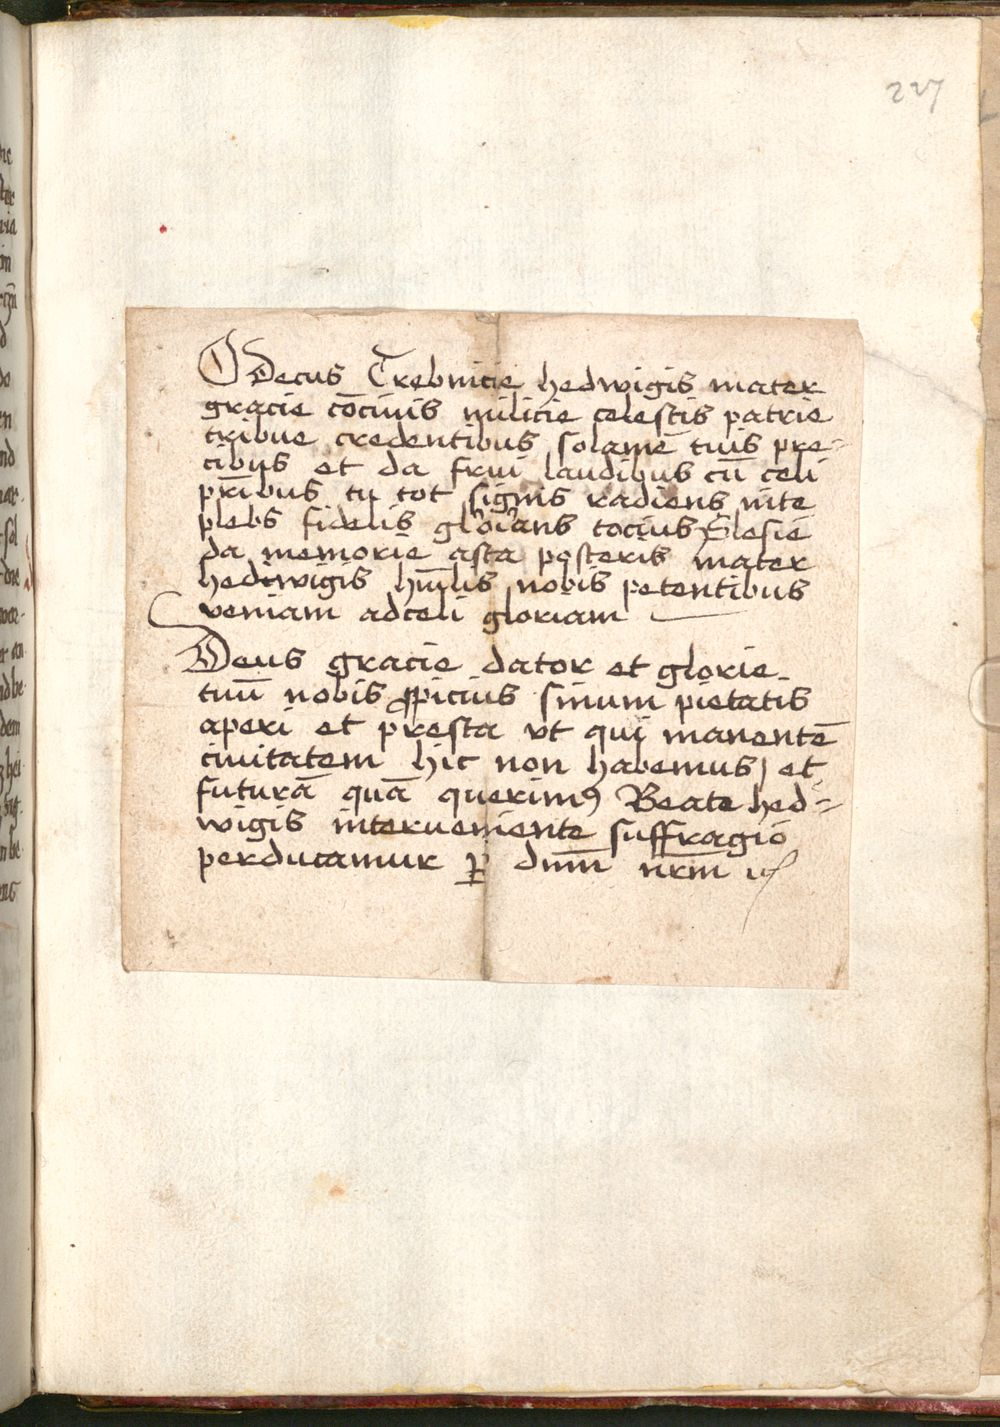 227
O Decus Trebnicie hedwigis mater
gracie cōciuis milicie celestis patrie
tribue credentibus solamē tuis pre-
cibus et da frui laudibus cū celi
pr̄ibus tu tot signis radiens uite
plebs fidelis glorians tocius Slesie
da memorie asta posteris mater
hedwigis hūilis nobis petentibus
veniam ad celi gloriam
Deus gracie dator et glorie
tuū nobis ꝓpicius sinum pietatis
aperi et presta vt qui manentē
ciuitatem hic non habemus / et
futurā quā querimꝯ Beate hed-
wigis interueniente suffragio
perducamur ꝑ dnm̄ nrm̄